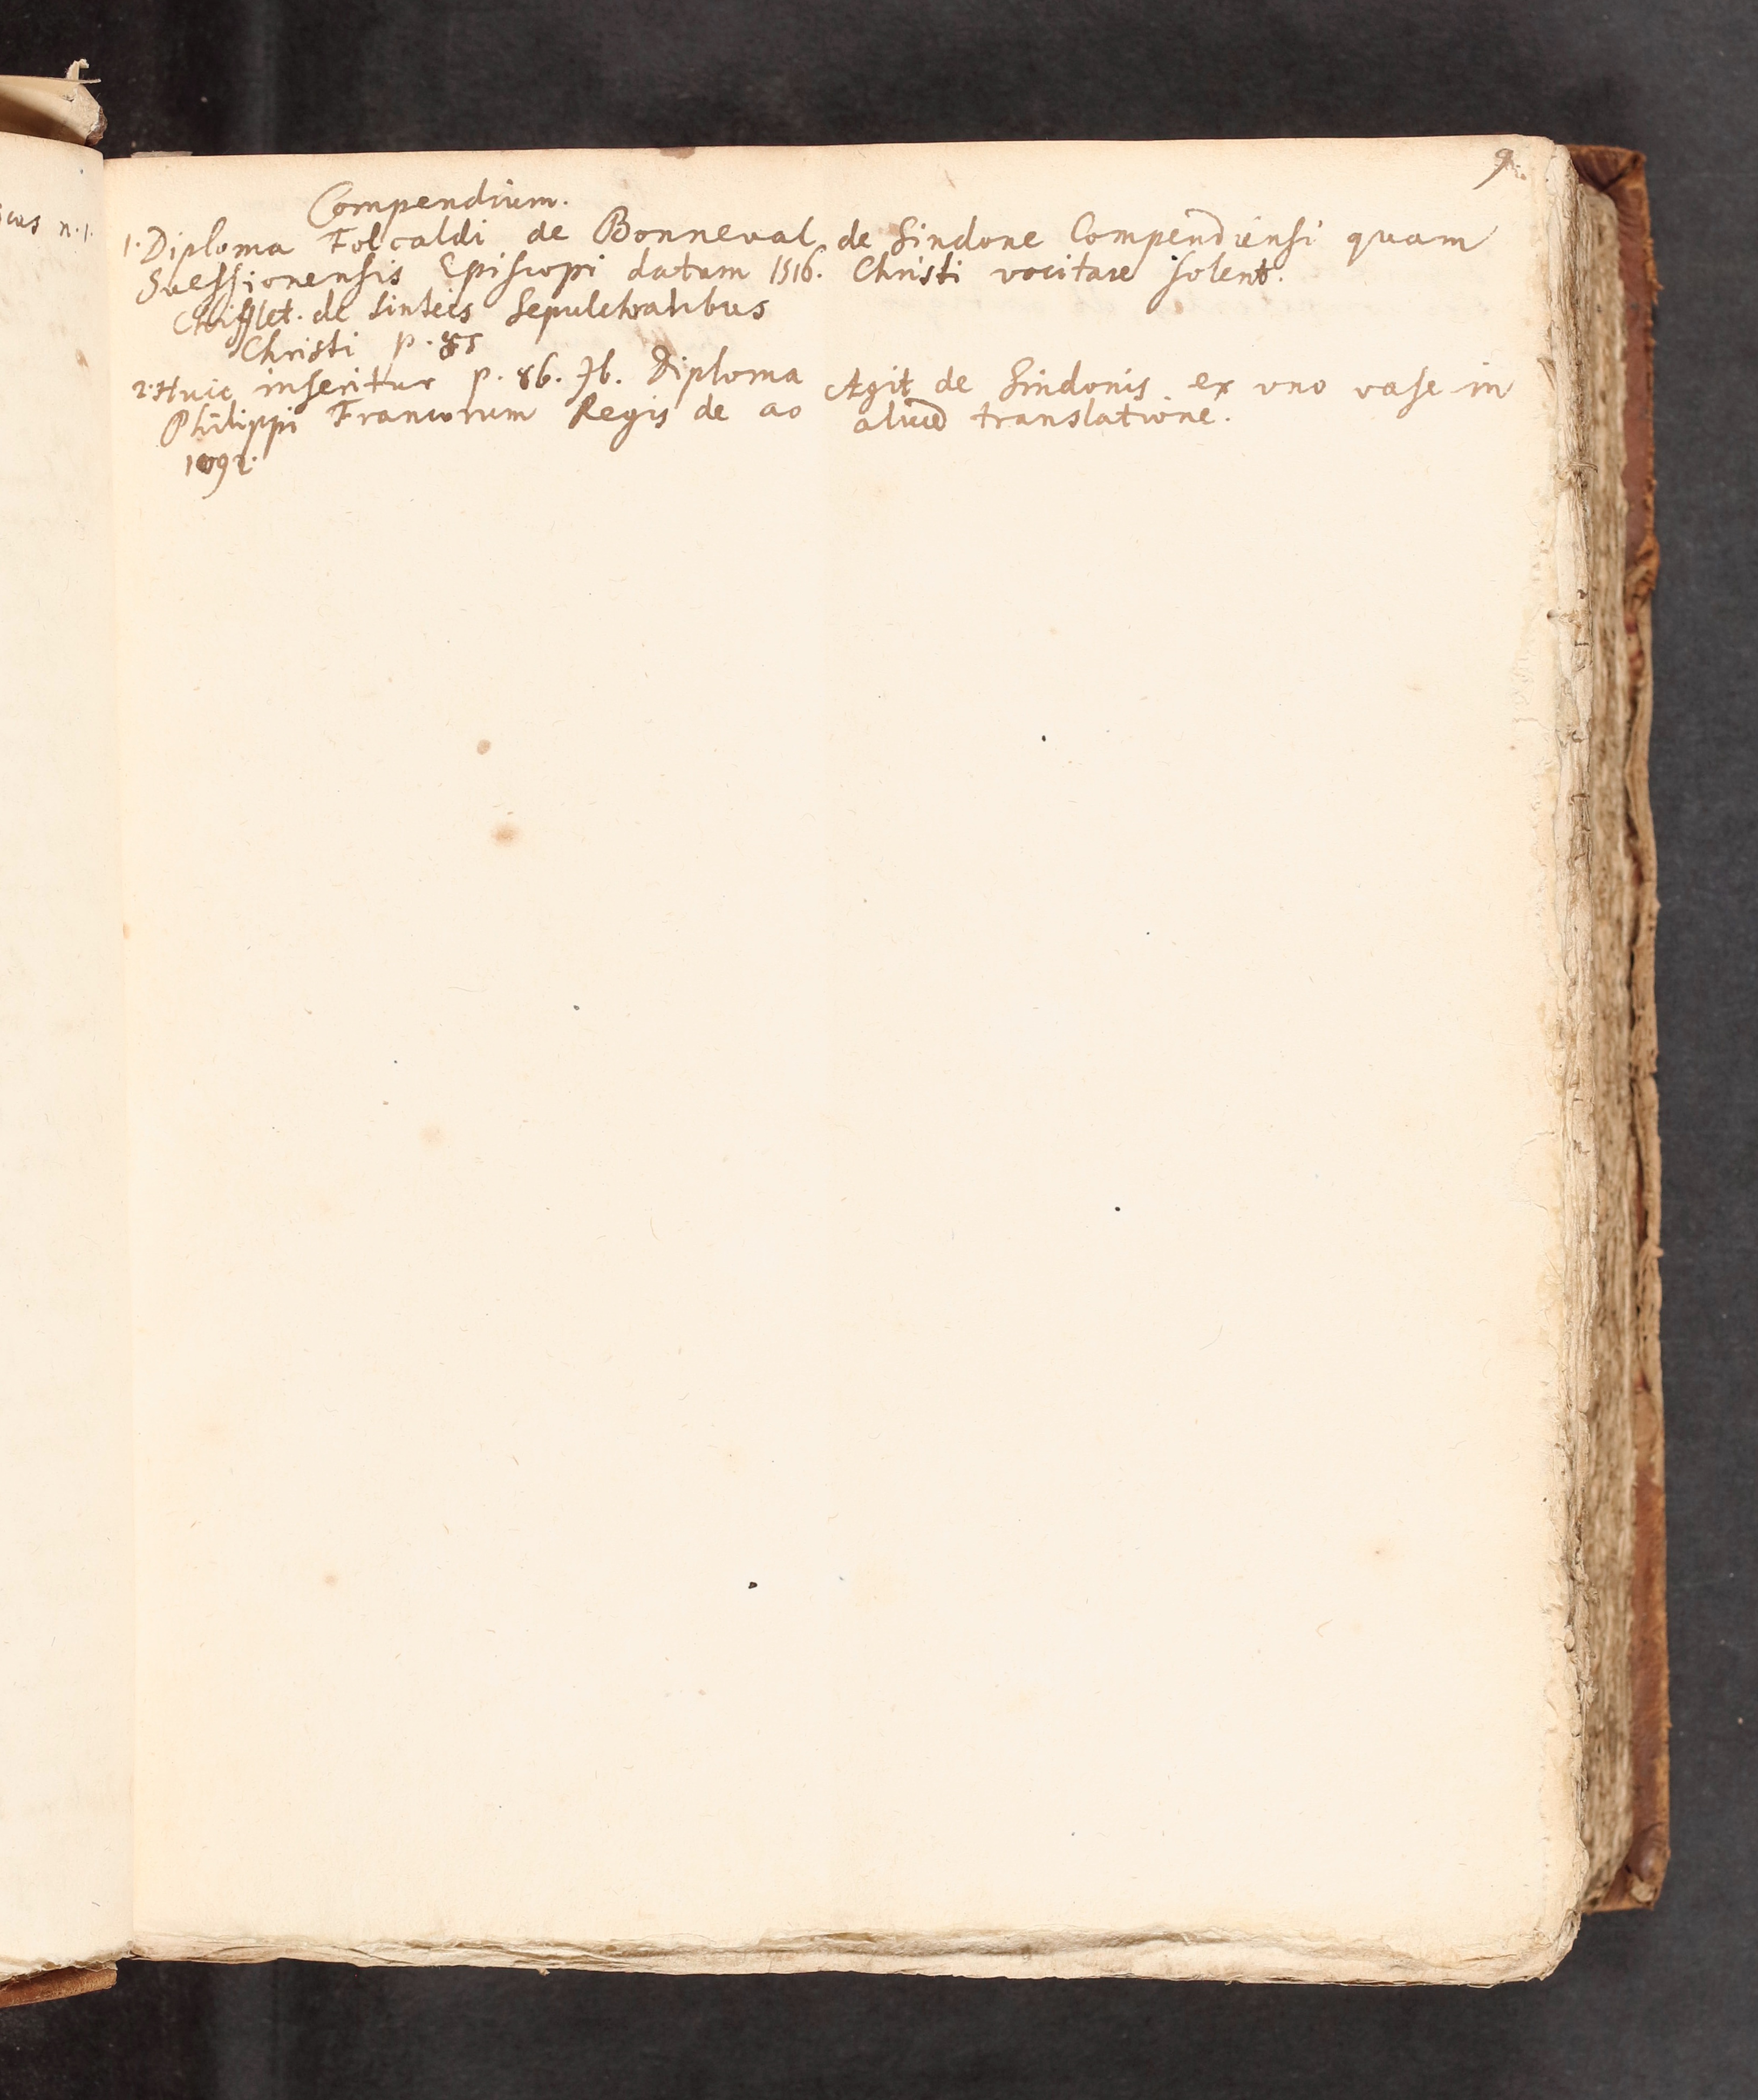 9.
Compendium.
1. Diploma Folcaldi de Bonneval
Suessionensis Episcopi datum 1516.
Chifflet. de linteis sepulchralibus
Christi p. 85
de Sindone Compendiensi quam
Christi vocitare solent.
2. Huic inseritur p. 86. Diploma
Philippi Francorum Regis de ao
1092.
Agit de Sindonis ex uno vase in
aliud translatione.
n. 1.